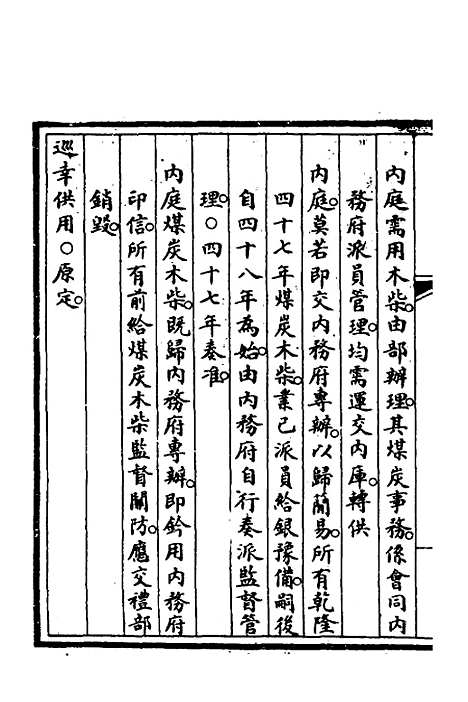 內庭需用木柴。由部辦理。其煤炭事務。係會同內
務府派員管理。均需運交內庫。轉供
內庭。莫若即交內務府專辦。以歸簡易。所有乾隆
四十七年煤炭木柴。業已派員給銀豫備。嗣後
自四十八年為始。由內務府自行奏派監督管
理。○四十七年奏准。
內庭煤炭木柴。既歸內務府專辦。即鈐用內務府
印信。所有前給煤炭木柴監督關防。應交禮部
銷毀。
巡幸供用○原定。